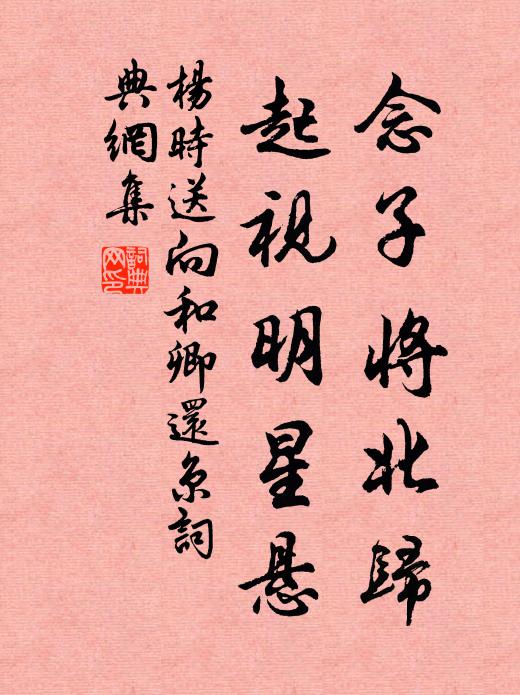 念子將北歸
起視明星懸
楊時送向和卿還京詞
典網集
詞典網印